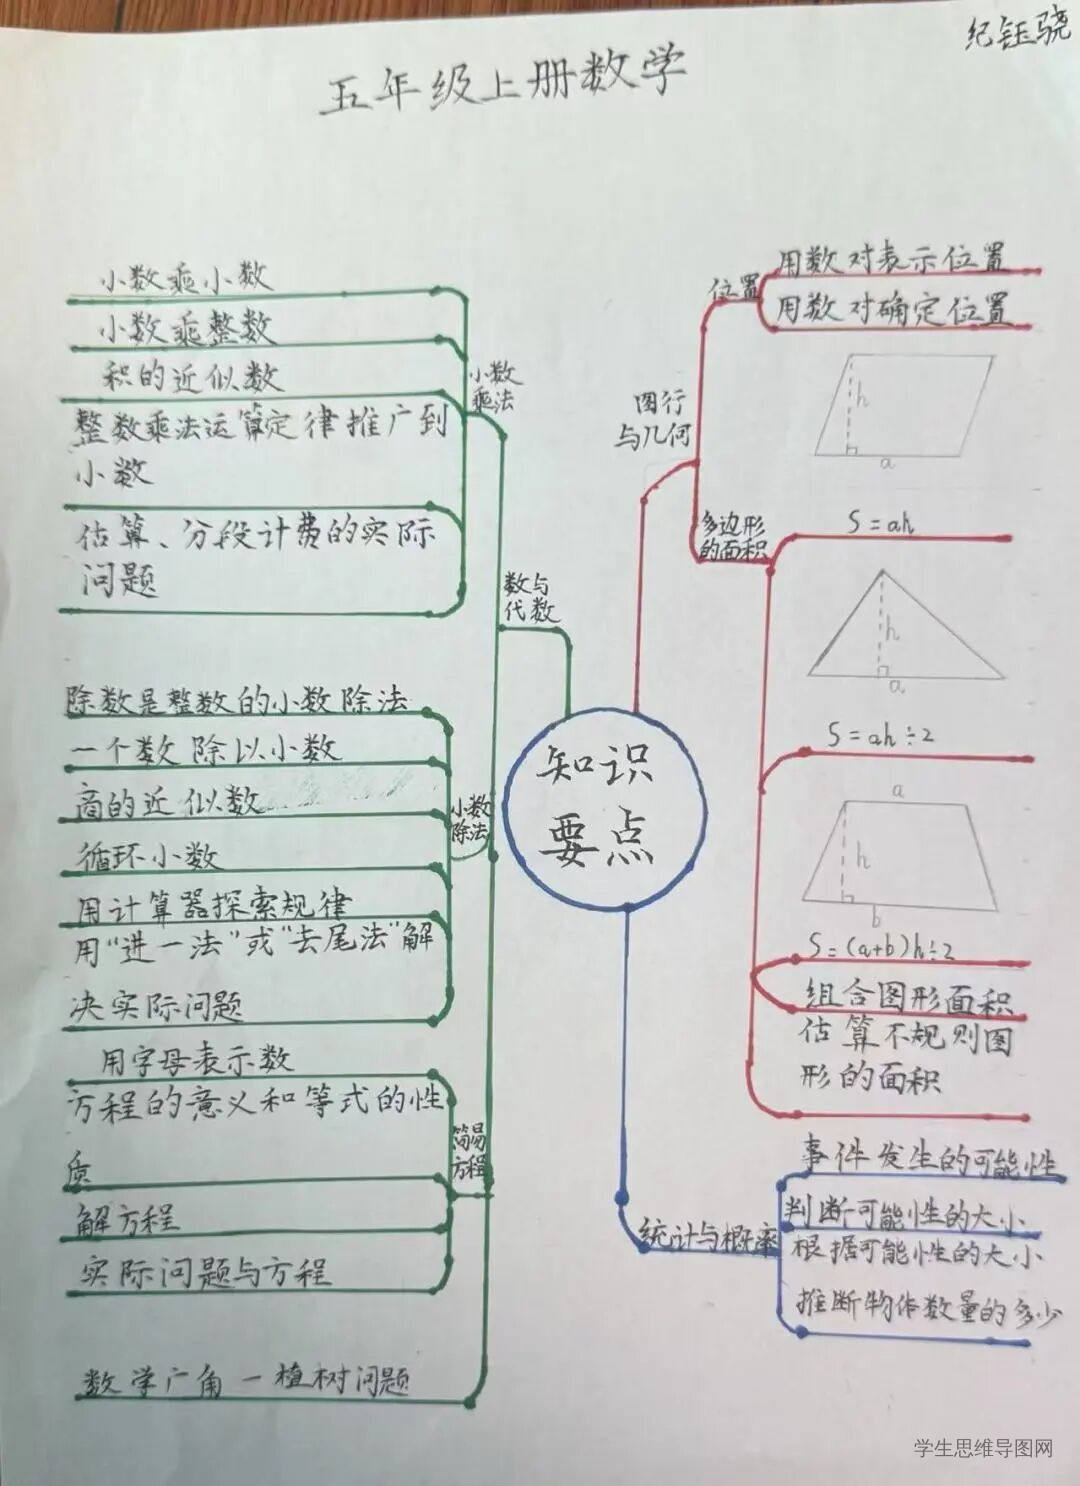 纪钰骁
五年级上册数学
小数乘小数
小数乘整数
积的近似数
整数乘法运算定律推广到
小数
估算、分段计费的实际
问题
小数
乘法
数与
代数
除数是整数的小数除法
一个数除以小数
商的近似数
循环小数
用计算器探索规律
用“进一法”或“去尾法”解
决实际问题
小数
除法
用字母表示数
方程的意义和等式的性
质
解方程
实际问题与方程
简易
方程
数学广角一植树问题
知识
要点
图行
与几何
位置
用数对表示位置
用数对确定位置
h
a
多边形
的面积
S=ah
h
a
S=ah÷2
a
h
b
S=(a+b)h÷2
组合图形面积
估算不规则图
形的面积
统计与概率
事件发生的可能性
判断可能性的大小
根据可能性的大小
推断物体数量的多少
学生思维导图网